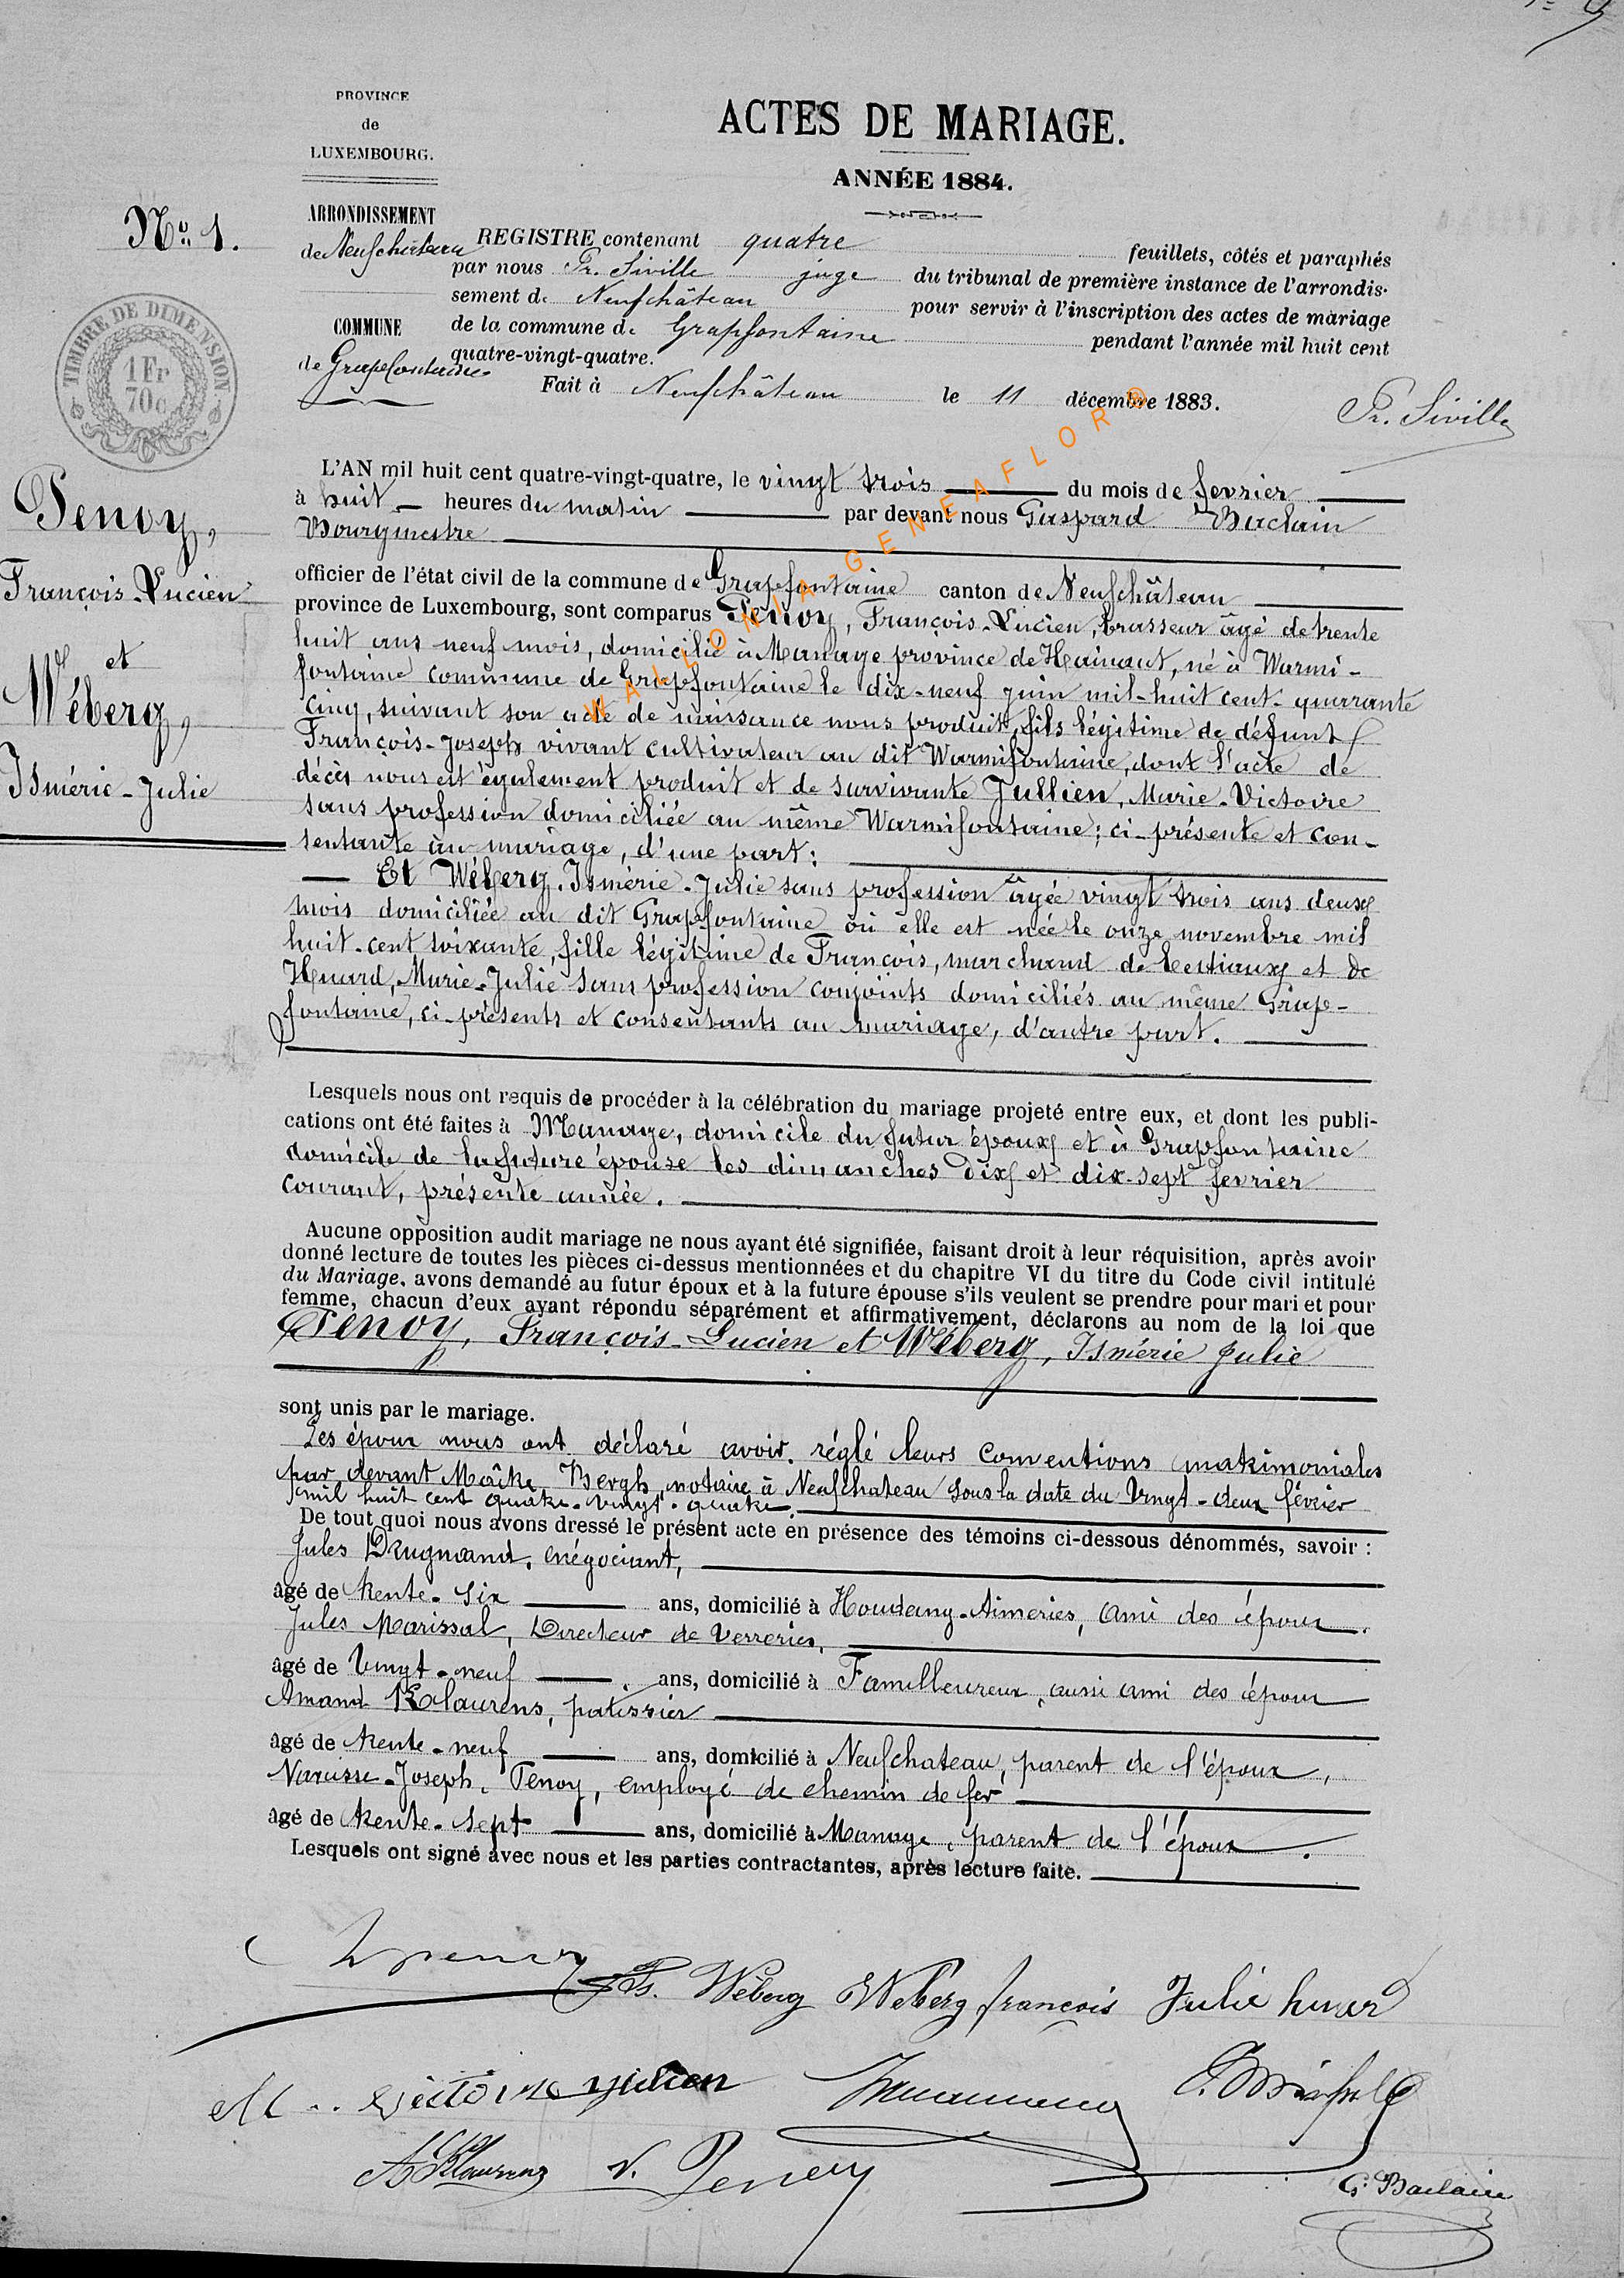 PROVINCE
de
LUXEMBOURG.
ACTES DE MARIAGE.
ANNÉE 1884.
No. 1.
ARRONDISSEMENT
de Neufchâteau
COMMUNE
de Grapfontaine
REGISTRE contenant quatre feuillets, côtés et paraphés
par nous Fr. Siville juge du tribunal de première instance de l'arrondis-
sement de Neufchâteau pour servir à l'inscription des actes de mariage
de la commune de Grapfontaine pendant l'année mil huit cent
quatre-vingt-quatre.
Fait à Neufchâteau le 11 décembre 1883.
Fr. Siville
TIMBRE DE DIMENSION
1 Fr
70c
Penoy,
François-Lucien
et
Wéberg,
Ismérie-Julie
L'AN mil huit cent quatre-vingt-quatre, le vingt trois du mois de fevrier
à huit heures du matin par devant nous Gaspard Baclain
Bourgmestre
officier de l'état civil de la commune de Grapfontaine canton de Neufchâteau
province de Luxembourg, sont comparus Penoy, François-Lucien, brasseur âgé de trente
huit ans neuf mois, domicilié à Manage province de Hainaut, né à Warmi-
fontaine commune de Grapfontaine le dix-neuf juin mil-huit cent-quarante
cinq, suivant son acte de naissance nous produit, fils légitime de défunt
François-Joseph vivant cultivateur au dit Warmifontaine, dont l'acte de
décès nous est également produit et de survivante Jullien, Marie-Victoire
sans profession domiciliée au même Warmifontaine; ci-présente et con-
sentante au mariage, d'une part;
Et Wéberg, Ismérie-Julie sans profession âgée vingt trois ans deux
mois domiciliée au dit Grapfontaine où elle est née le onze novembre mil
huit-cent soixante, fille légitime de François, marchand de bestiaux et de
Huard, Marie-Julie sans profession conjoints domiciliés au même Grap-
fontaine, ci-présents et consentants au mariage, d'autre part.
Lesquels nous ont requis de procéder à la célébration du mariage projeté entre eux, et dont les publi-
cations ont été faites à Manage, domicile du futur époux et à Grapfontaine
domicile de la future épouse les dimanches dix et dix-sept fevrier
courant, présente année.
Aucune opposition audit mariage ne nous ayant été signifiée, faisant droit à leur réquisition, après avoir
donné lecture de toutes les pièces ci-dessus mentionnées et du chapitre VI du titre du Code civil intitulé
du Mariage, avons demandé au futur époux et à la future épouse s'ils veulent se prendre pour mari et pour
femme, chacun d'eux ayant répondu séparément et affirmativement, déclarons au nom de la loi que
Penoy, François-Lucien et Wéberg, Ismérie Julie
sont unis par le mariage.
Les époux nous ont déclaré avoir réglé leurs conventions matrimoniales
par devant Maître Bergh, notaire à Neufchateau sous la date du Vingt-deux février
mil huit cent quatre-vingt-quatre.
De tout quoi nous avons dressé le présent acte en présence des témoins ci-dessous dénommés, savoir :
Jules Drugmand, négociant,
âgé de trente-six ans, domicilié à Houdeng-Aimeries, ami des époux.
Jules Marissal, Directeur de Verreries,
âgé de Vingt-neuf ans, domicilié à Familleureux, aussi ami des époux
Amand Rolaurens, patissier
âgé de trente-neuf ans, domicilié à Neufchateau, parent de l'époux,
Narcisse-Joseph Penoy, employé de chemin de fer
âgé de trente-sept ans, domicilié à Manage, parent de l'époux.
Lesquels ont signé avec nous et les parties contractantes, après lecture faite.
Wéberg Weberg françois Julie huard
M Victoire julien
N. Penoy
G. Baclain
WALLONIA-GENEAFLOR®